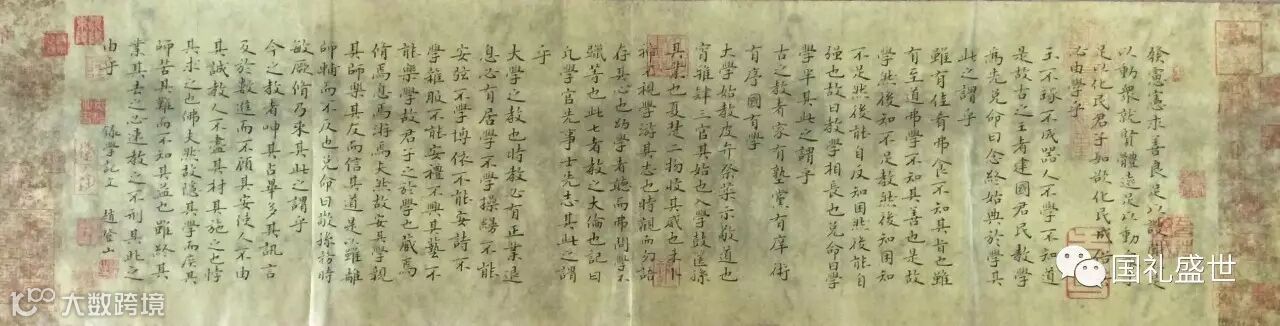 發憲憲求善良足以謏聞
以動衆就賢體遠足以動
足以化民君子如欲化民成俗
必由學乎
玉不琢不成器人不學不知道
是故古之王者建國君民教學
爲先兌命曰念終始典於學其
此之謂乎
雖有佳肴弗食不知其旨也雖
有至道弗學不知其善也是故
學然後知不足教然後知困知
不足然後能自反知困然後能自
强也故曰教學相長也兌命曰學
學半其此之謂乎
古之教者家有塾黨有庠術
有序國有學
大學始教皮弁祭菜示敬道也
宵雅肄三官其始也入學鼓篋孫
其業也夏楚二物收其威也未卜
禘不視學游其志也時觀而勿語
存其心也幼學者聽而弗問學不
躐等也此七者教之大倫也記曰
凡學官先事士先志其此之謂
乎
大學之教也時教必有正業退
息必有居學不學操縵不能
安弦不學博依不能安詩不
學雜服不能安禮不興其藝不
能樂學故君子之於學也藏焉
脩焉息焉游焉夫然故安其學親
其師樂其友而信其道是以雖離
師輔而不反也兌命曰敬孫務時
敏厥脩乃來其此之謂乎
今之教者呻其占畢多其訊言
及於數進而不顧其安使人不由
其誠教人不盡其材其施之也悖
其求之也佛夫然故隱其學而疾其
師苦其難而不知其益也雖終其
業其去之必速教之不刑其此之
由乎 錄學記文 趙登山
国礼盛世
大数跨境